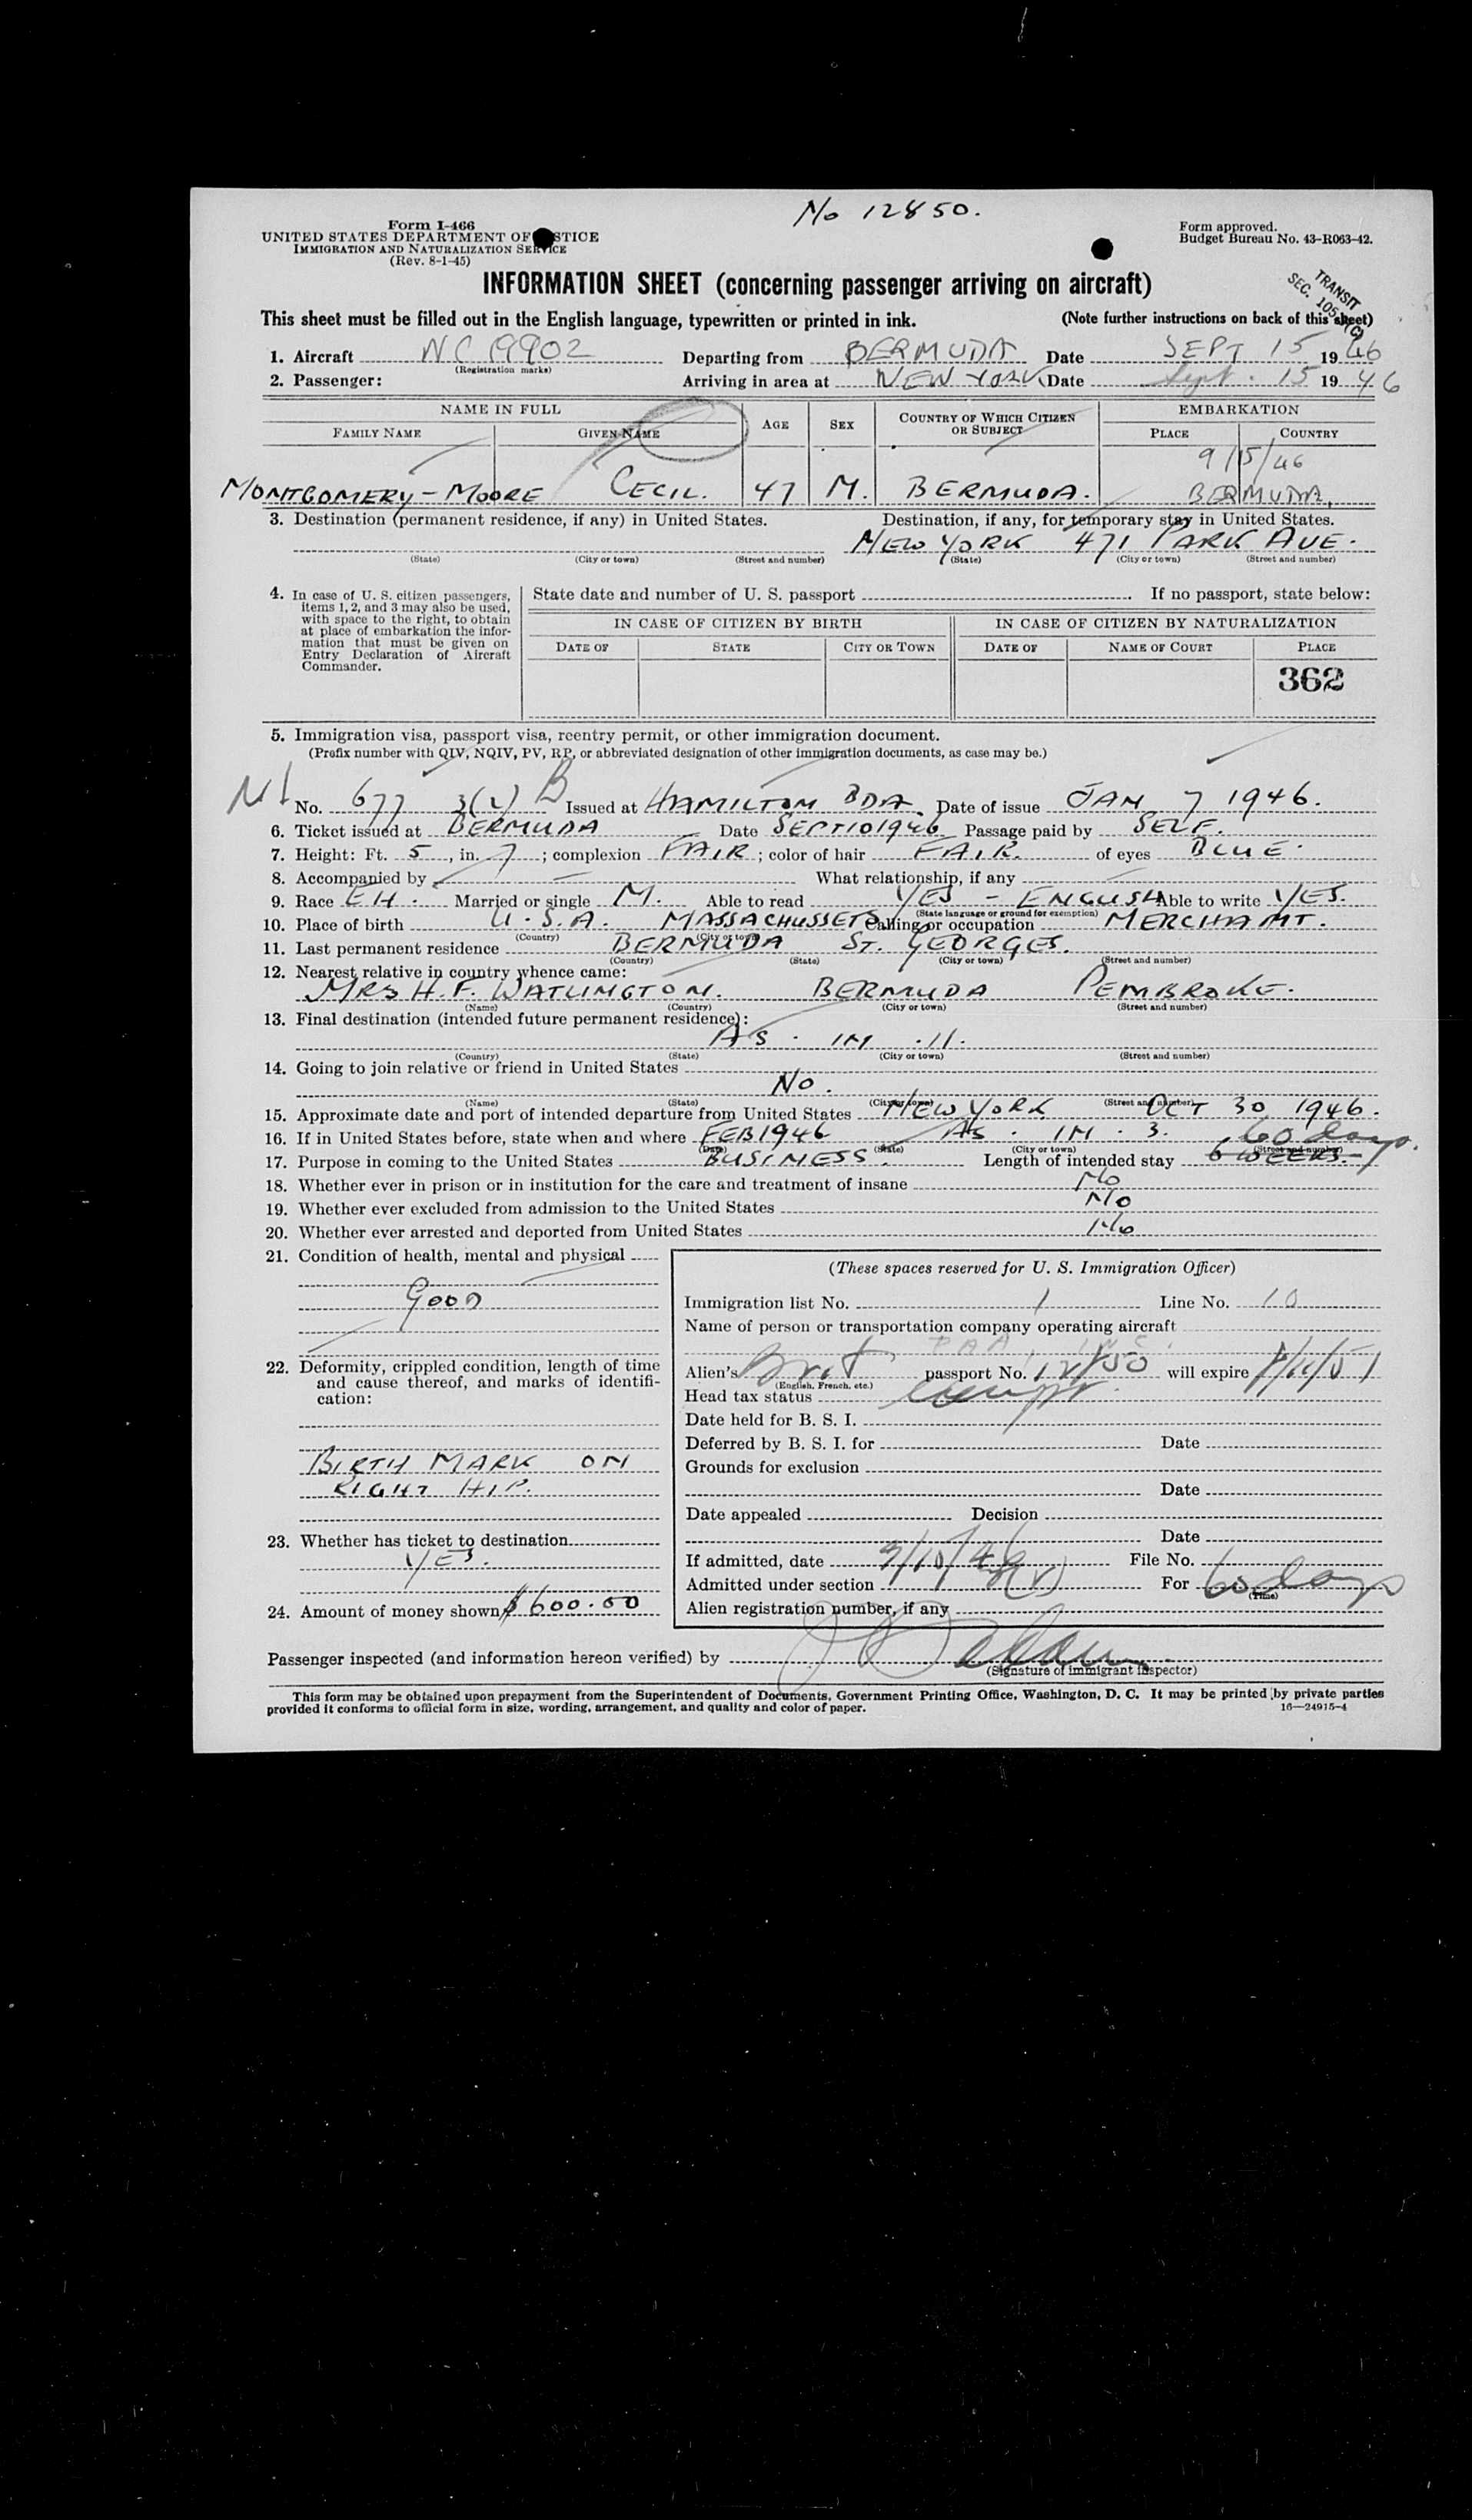 No 12850.
Form I-466
UNITED STATES DEPARTMENT OF STICE
IMMIGRATION AND NATURALIZATION SERVICE
(Rev. 8-1-45)
Form approved.
Budget Bureau No. 43-R063-42.
INFORMATION SHEET (concerning passenger arriving on aircraft)
TRANSIT
SEC. 105
This sheet must be filled out in the English language, typewritten or printed in ink. (Note further instructions on back of this sheet)
1. Aircraft NC 19902 Departing from BERMUDA Date SEPT 15 1946
(Registration marks)
2. Passenger: Arriving in area at NEW YORK Date Sept. 15 1946
NAME IN FULL AGE SEX COUNTRY OF WHICH CITIZEN OR SUBJECT EMBARKATION
FAMILY NAME GIVEN NAME PLACE COUNTRY
9/15/46
MONTGOMERY-MOORE CECIL. 47 M. BERMUDA. BERMUDA.
3. Destination (permanent residence, if any) in United States. Destination, if any, for temporary stay in United States.
NEW YORK 471 PARK AVE.
(State) (City or town) (Street and number) (State) (City or town) (Street and number)
4. In case of U. S. citizen passengers, items 1, 2, and 3 may also be used, with space to the right, to obtain at place of embarkation the information that must be given on Entry Declaration of Aircraft Commander.
State date and number of U. S. passport If no passport, state below:
IN CASE OF CITIZEN BY BIRTH IN CASE OF CITIZEN BY NATURALIZATION
DATE OF STATE CITY OR TOWN DATE OF NAME OF COURT PLACE
362
5. Immigration visa, passport visa, reentry permit, or other immigration document.
(Prefix number with QIV, NQIV, PV, RP, or abbreviated designation of other immigration documents, as case may be.)
No. 677 3(2) B Issued at HAMILTON BDA. Date of issue JAN 7 1946.
6. Ticket issued at BERMUDA Date SEPT 10 1946 Passage paid by SELF.
7. Height: Ft. 5, in. 7; complexion FAIR; color of hair FAIR. of eyes BLUE.
8. Accompanied by — What relationship, if any —
9. Race EH. Married or single M. Able to read YES - ENGLISH Able to write YES.
(State language or ground for exemption)
10. Place of birth U.S.A. MASSACHUSSETS Calling or occupation MERCHANT.
(Country) (City or town)
11. Last permanent residence BERMUDA ST. GEORGES.
(Country) (State) (City or town) (Street and number)
12. Nearest relative in country whence came:
MRS H.F. WATLINGTON. BERMUDA PEMBROKE.
(Name) (Country) (City or town) (Street and number)
13. Final destination (intended future permanent residence):
AS. IN. 11.
(Country) (State) (City or town) (Street and number)
14. Going to join relative or friend in United States
No.
(Name) (State) (City or town) (Street and number)
15. Approximate date and port of intended departure from United States NEW YORK OCT 30 1946.
16. If in United States before, state when and where FEB 1946 AS. IN. 3.
(Date) (State) (City or town) (Street and number)
60 days.
17. Purpose in coming to the United States BUSINESS. Length of intended stay 6 WEEKS.
18. Whether ever in prison or in institution for the care and treatment of insane No
19. Whether ever excluded from admission to the United States No
20. Whether ever arrested and deported from United States No
21. Condition of health, mental and physical
GOOD
22. Deformity, crippled condition, length of time and cause thereof, and marks of identification:
BIRTH MARK ON
RIGHT HIP.
23. Whether has ticket to destination
YES.
24. Amount of money shown $600.00
(These spaces reserved for U. S. Immigration Officer)
Immigration list No. 1 Line No. 10
Name of person or transportation company operating aircraft
PAA
Alien's Brit passport No. 12850 will expire
(English, French, etc.)
Head tax status Exempt
Date held for B. S. I.
Deferred by B. S. I. for Date
Grounds for exclusion
Date
Date appealed Decision
Date
If admitted, date 9/15/46 File No.
Admitted under section For 60 days
(Time)
Alien registration number, if any
Passenger inspected (and information hereon verified) by
(Signature of immigrant inspector)
This form may be obtained upon prepayment from the Superintendent of Documents, Government Printing Office, Washington, D. C. It may be printed by private parties
provided it conforms to official form in size, wording, arrangement, and quality and color of paper. 16—24915-4